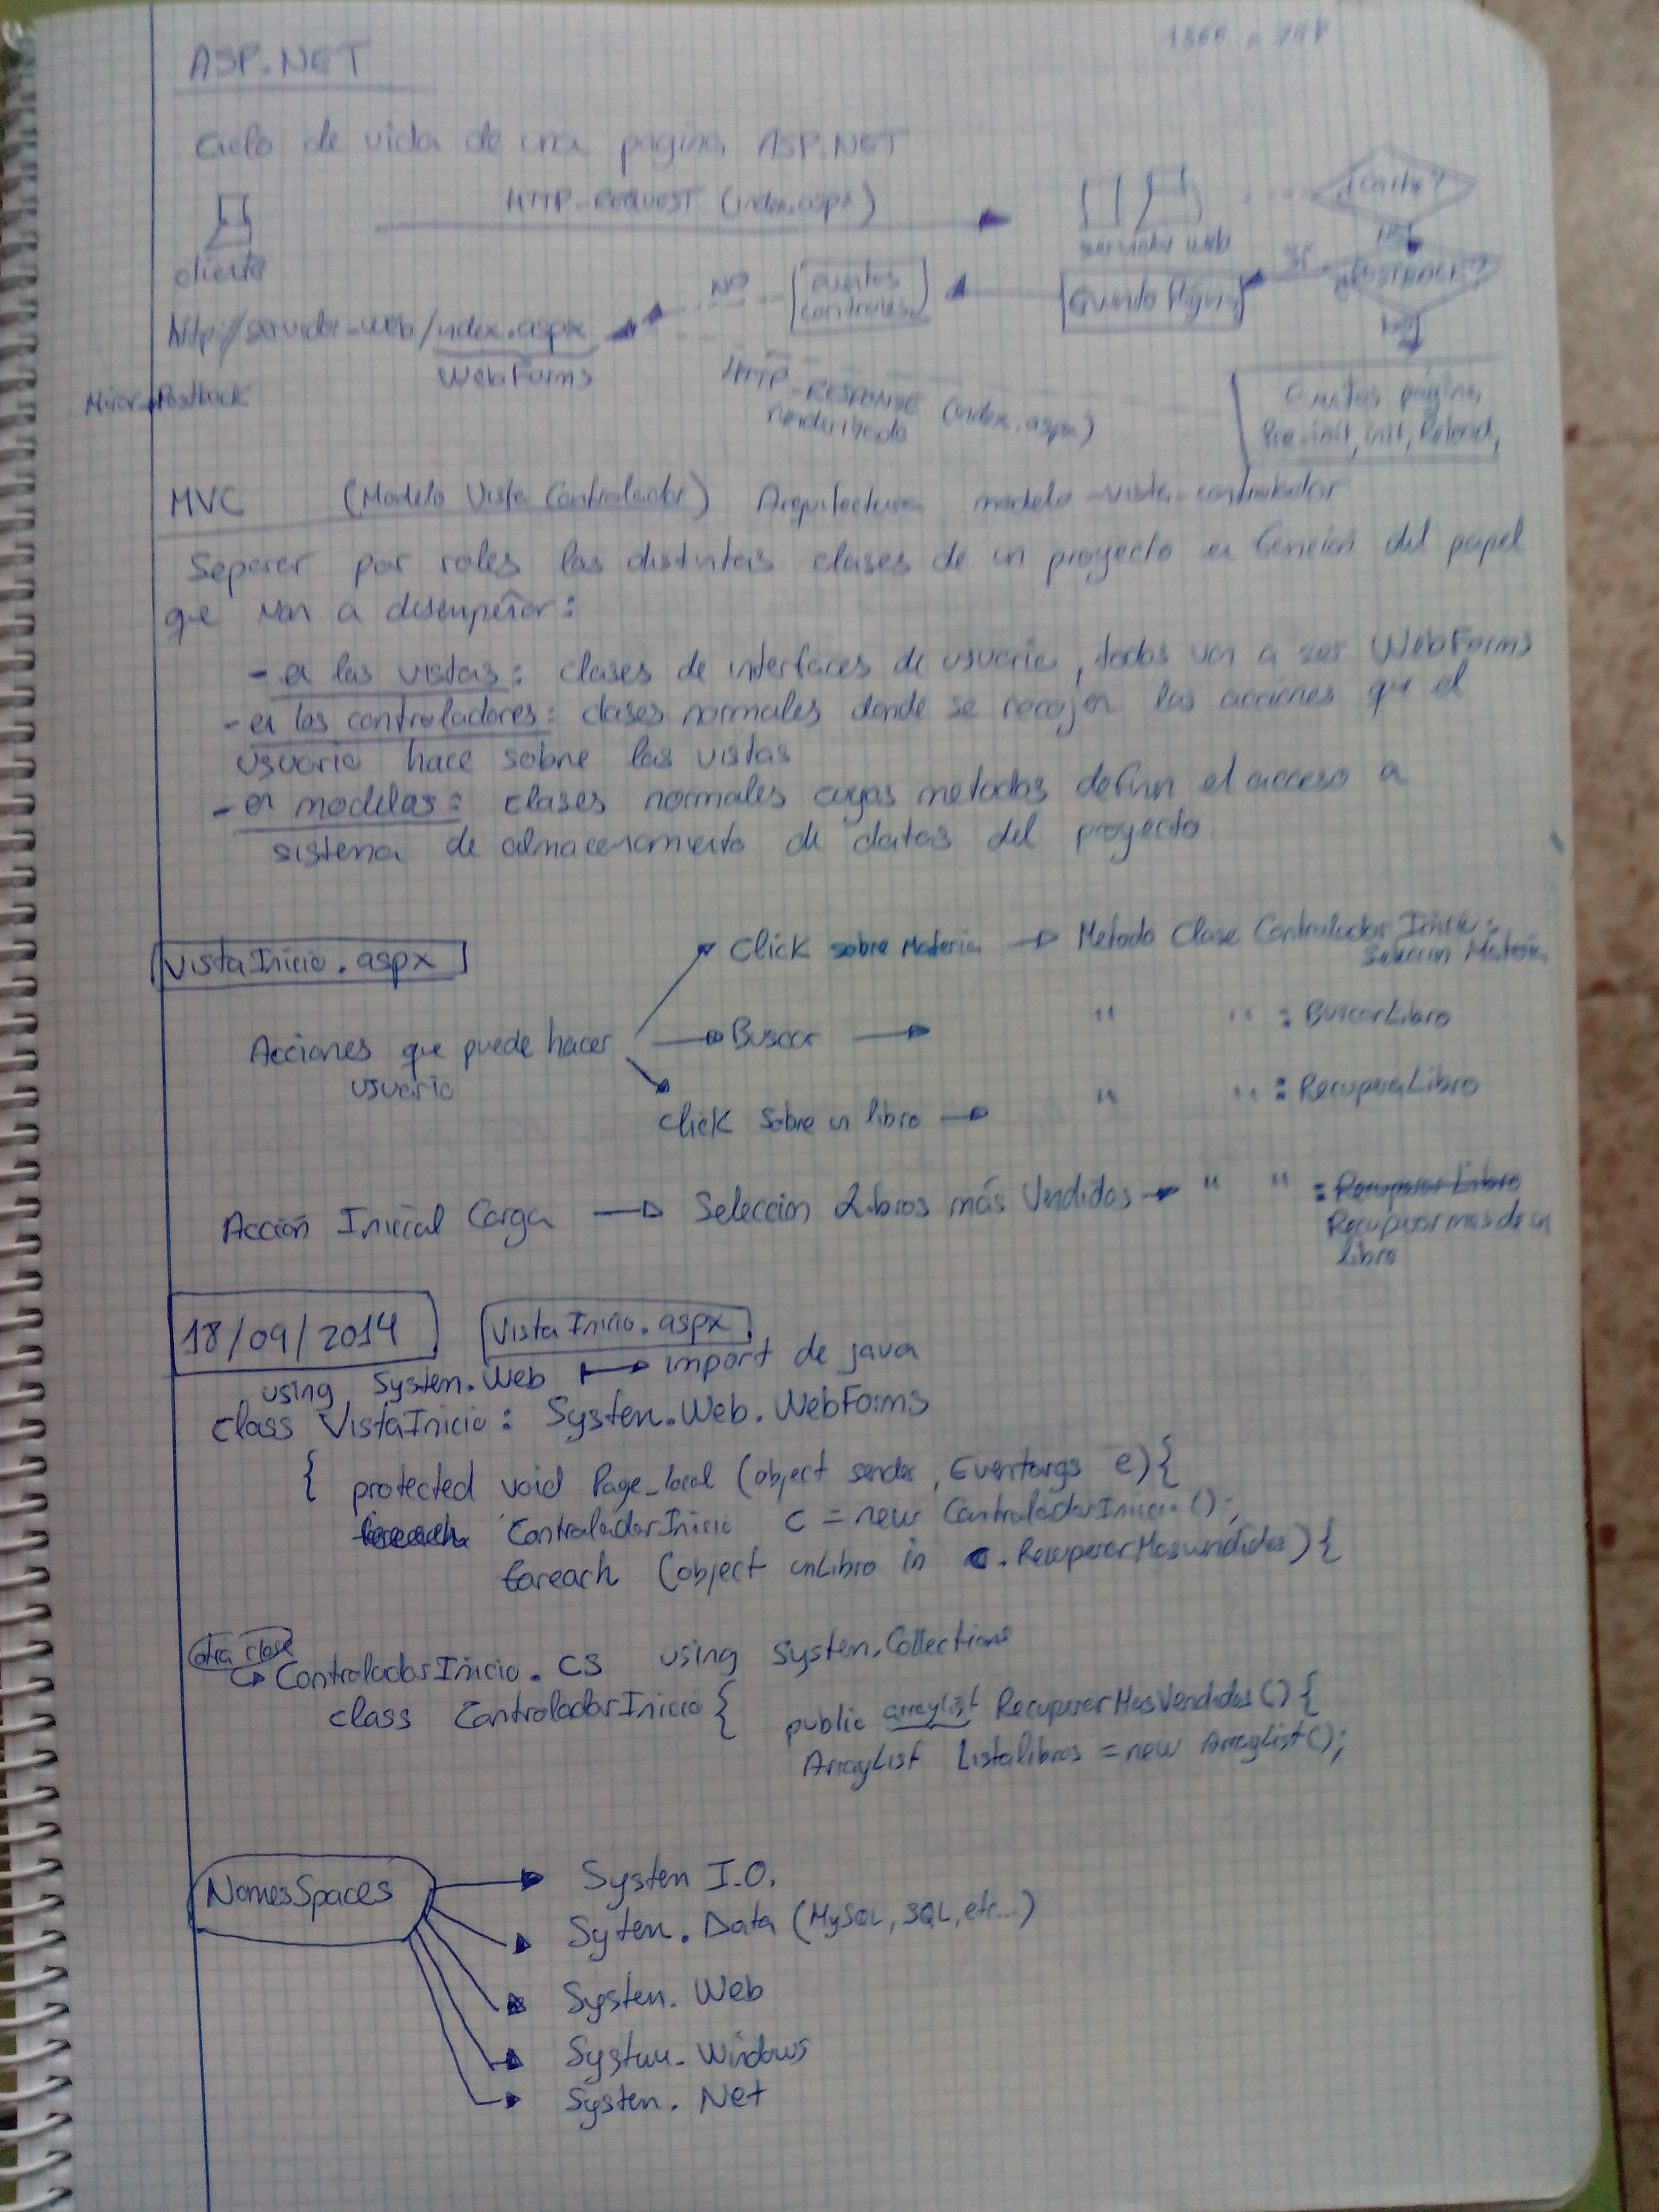 ASP.NET
Ciclo de vida de una pagina ASP.NET
HTTP-REQUEST (index.aspx)
cliente
servidor web
NO
SI
http://servidor-web/index.aspx
NO
eventos
controles
Evento Página
¿POSTBACK?
NO
WebForms
HTTP-RESPONSE (index.aspx)
renderizado
Mirar Postback
Eventos página
Pre-init, init,
MVC (Modelo Vista Controlador) Arquitectura modelo-vista-controlador
Separar por roles las distintas clases de un proyecto en función del papel
que van a desempeñar:
- en las vistas: clases de interfaces de usuario, todos van a ser WebForms
- en los controladores: clases normales donde se recojen las acciones que el
usuario hace sobre las vistas
- en modelos: clases normales cuyos metodos definen el acceso a
sistema de almacenamiento de datos del proyecto
VistaInicio.aspx
Click sobre Materia → Metodo Clase Controlador Inicio:
Seleccion Materia
Acciones que puede hacer
usuario
Buscar → " " : BuscarLibro
Click sobre un libro → " " : RecuperaLibro
Acción Inicial Carga → Seleccion Libros más Vendidos → " " : Recuperar Libro
Recuperar mas de un
libro
18/09/2014 VistaInicio.aspx
using System.Web → import de java
class VistaInicio: System.Web.WebForms
{ protected void Page_local (object sender, Eventargs e){
foreach ControladorInicio c = new ControladorInicio();
foreach (object unLibro in c.RecuperarMasvendidos){
otra clase
ControladorInicio.cs using System.Collections
class ControladorInicio { public arraylist RecuperarMasVendidos(){
ArrayList Listalibros = new ArrayList();
NamesSpaces
System I.O.
Sytem.Data (MySQL, SQL, etc...)
System.Web
System.Windows
System.Net